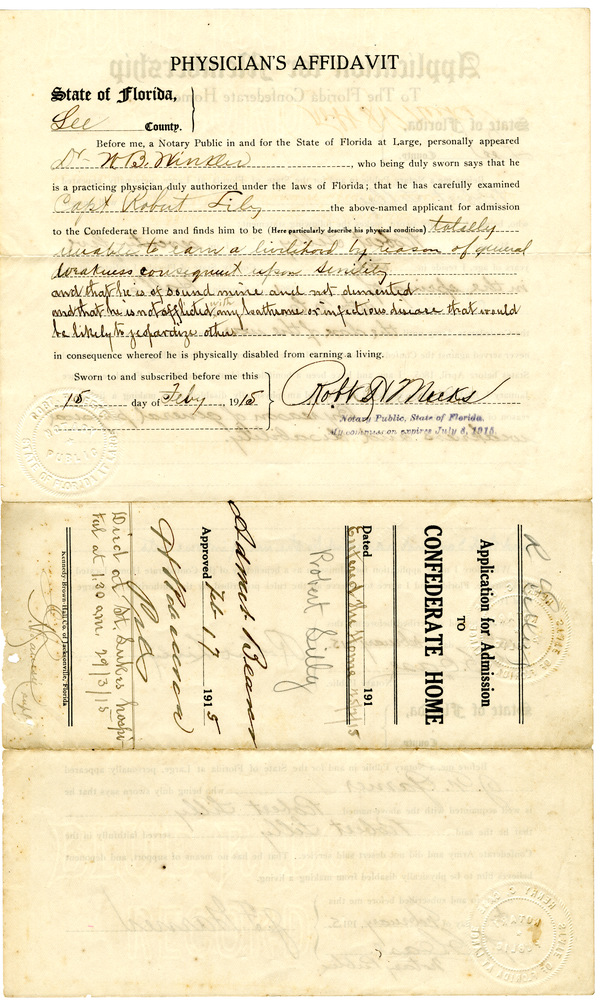 PHYSICIAN'S AFFIDAVIT
State of Florida,
Lee County.
Before me, a Notary Public in and for the State of Florida at Large, personally appeared
Dr W. B. Winkler, who being duly sworn says that he
is a practicing physician duly authorized under the laws of Florida; that he has carefully examined
Capt Robert Lily the above-named applicant for admission
to the Confederate Home and finds him to be (Here particularly describe his physical condition) totally
unable to earn a livlihood by reason of general
weakness consequent upon senility
and that he is of sound mine and not demented
and that he is not afflicted with any loathsome or infectious disease that would
be likely to jeopardize other
in consequence whereof he is physically disabled from earning a living.
Sworn to and subscribed before me this
15 day of Feby, 1915
Robt A Meeks
Notary Public, State of Florida.
My commission expires July 8, 1915.
Application for Admission
TO
CONFEDERATE HOME
191
Dated
Entered the Home
Robert Lily
Approved Feb 17 1915
Admit Bearer
Died at St. Lukes hospi
tal at 1:30 am 29/3/15
Kennedy-Brown-Hall Co. of Jacksonville, Florida